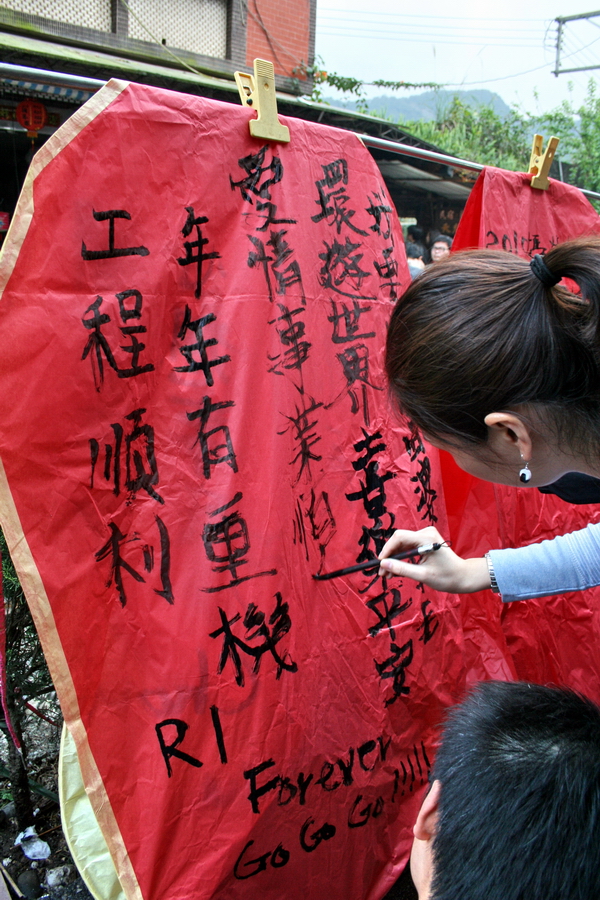 環遊世界喜樂平安
愛情事業
年年有重機
工程順利
RI Forever
Go Go Go!!!!!